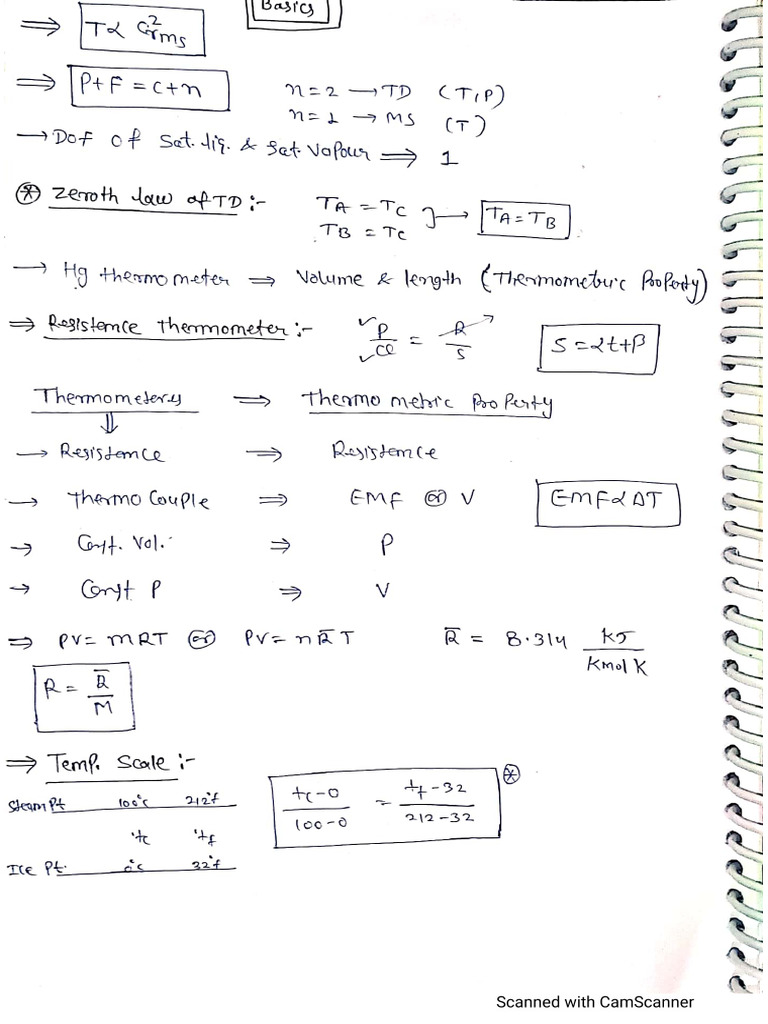 Basics
⇒ T ∝ C²rms
⇒ P+F = C+n
n=2 → TD (T,P)
n=1 → MS (T)
→ Dof of Sat. liq. & Sat. Vapour ⇒ 1
⊛ Zeroth law of TD :-
TA = TC
TB = TC } → TA = TB
→ Hg thermometer ⇒ Volume & length (Thermometric Property)
⇒ Resistence thermometer :- S = αt+β
Thermometers ⇒ Thermometric Property
⇓
→ Resistence ⇒ Resistence
→ Thermo Couple ⇒ EMF or V EMF ∝ ΔT
→ Const. Vol. ⇒ P
→ Const P ⇒ V
⇒ PV = mRT or PV = nR̄T R̄ = 8.314 KJ/Kmol K
R = R̄/M
⇒ Temp. Scale :-
Steam Pt 100°c 212°f
tc tf
Ice Pt. 0°c 32°f
(tc-0)/(100-0) = (tf-32)/(212-32) ⊛
Scanned with CamScanner